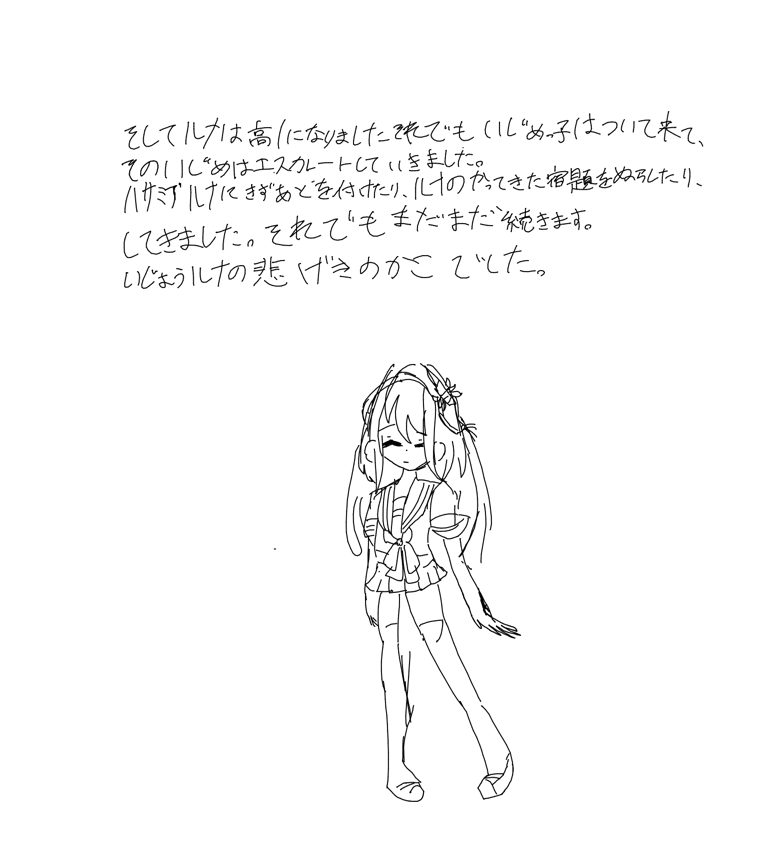 そしてルナは高1になりましたそれでもいじめっ子はついて来て、
そのいじめはエスカレートしていきました。
ハサミでルナにきずあとを付けたり、ルナのやってきた宿題をぬらしたり、
してきました。それでもまだまだ続きます。
いじょうルナの悲げきのかこでした。